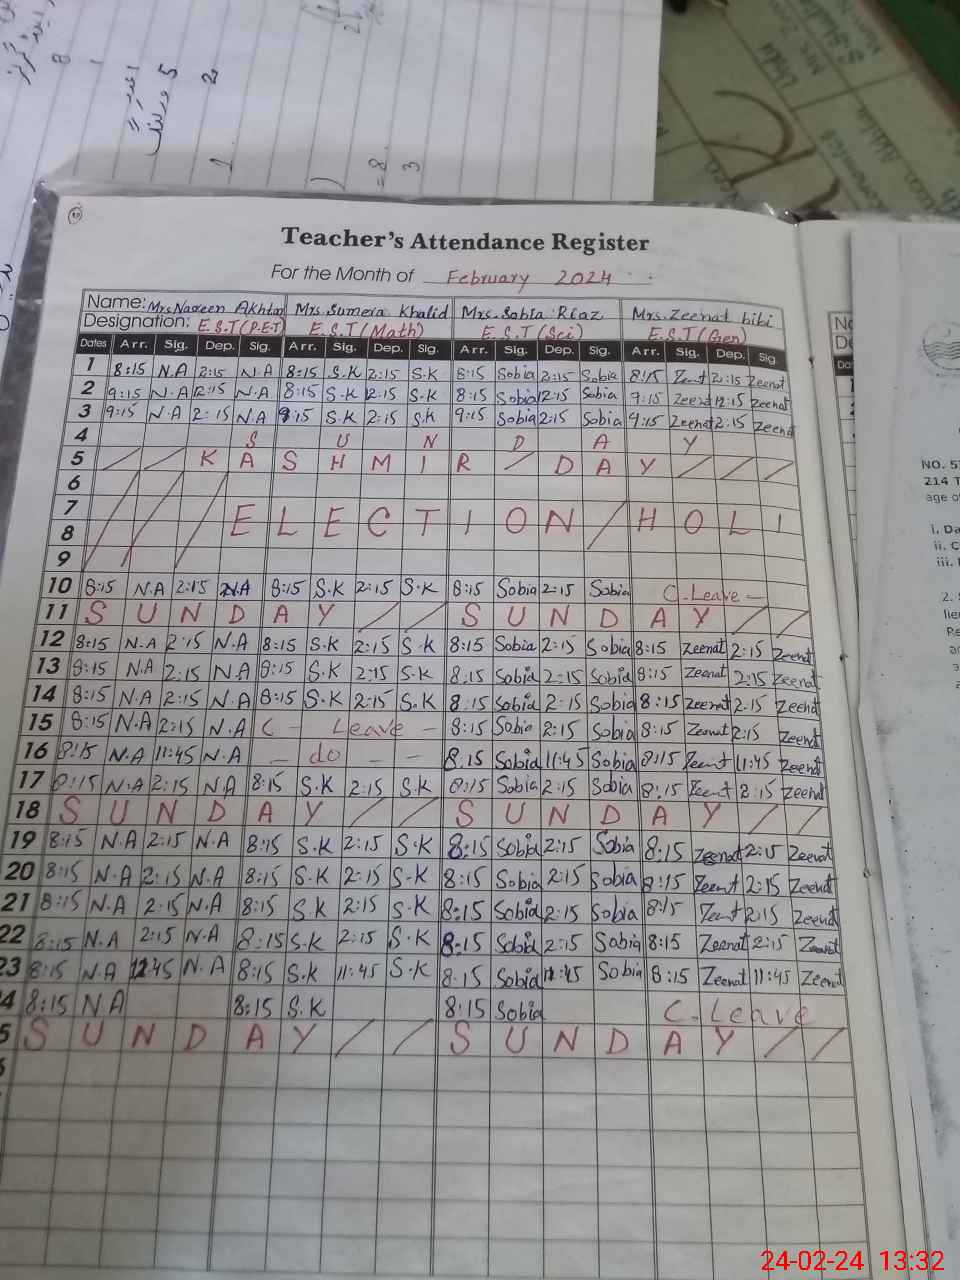 Teacher's Attendance Register
For the Month of February 2024
Name: Mrs. Nasreen Akhtar Mrs. Sumera Khalid Mrs. Sobia Riaz Mrs. Zeenat bibi
Designation: E.S.T (P.E.T) E.S.T (Math) E.S.T (Sci) E.S.T (Gen)
Dates Arr. Sig. Dep. Sig. Arr. Sig. Dep. Sig. Arr. Sig. Dep. Sig. Arr. Sig. Dep. Sig.
1 8:15 N.A 2:15 N.A 8:15 S.K 2:15 S.K 8:15 Sobia 2:15 Sobia 8:15 Zeenat 2:15 Zeenat
2 9:15 N.A 12:15 N.A 8:15 S.K 12:15 S.K 8:15 Sobia 12:15 Sobia 9:15 Zeenat 12:15 Zeenat
3 9:15 N.A 2:15 N.A 9:15 S.K 2:15 S.K 9:15 Sobia 2:15 Sobia 9:15 Zeenat 2:15 Zeenat
4 S U N D A Y
5 K A S H M I R / D A Y
6
7 E L E C T I O N / H O L I
8
9
10 8:15 N.A 2:15 N.A 8:15 S.K 2:15 S.K 8:15 Sobia 2:15 Sobia C-Leave -
11 S U N D A Y / / S U N D A Y / /
12 8:15 N.A 2:15 N.A 8:15 S.K 2:15 S.K 8:15 Sobia 2:15 Sobia 8:15 Zeenat 2:15 Zeenat
13 8:15 N.A 2:15 N.A 8:15 S.K 2:15 S.K 8:15 Sobia 2:15 Sobia 8:15 Zeenat 2:15 Zeenat
14 8:15 N.A 2:15 N.A 8:15 S.K 2:15 S.K 8:15 Sobia 2:15 Sobia 8:15 Zeenat 2:15 Zeenat
15 8:15 N.A 2:15 N.A C - Leave - 8:15 Sobia 2:15 Sobia 8:15 Zeenat 2:15 Zeenat
16 8:15 N.A 11:45 N.A - do - - 8:15 Sobia 11:45 Sobia 8:15 Zeenat 11:45 Zeenat
17 8:15 N.A 2:15 N.A 8:15 S.K 2:15 S.K 8:15 Sobia 2:15 Sobia 8:15 Zeenat 2:15 Zeenat
18 S U N D A Y / / S U N D A Y / /
19 8:15 N.A 2:15 N.A 8:15 S.K 2:15 S.K 8:15 Sobia 2:15 Sobia 8:15 Zeenat 2:15 Zeenat
20 8:15 N.A 2:15 N.A 8:15 S.K 2:15 S.K 8:15 Sobia 2:15 Sobia 8:15 Zeenat 2:15 Zeenat
21 8:15 N.A 2:15 N.A 8:15 S.K 2:15 S.K 8:15 Sobia 2:15 Sobia 8:15 Zeenat 2:15 Zeenat
22 8:15 N.A 2:15 N.A 8:15 S.K 2:15 S.K 8:15 Sobia 2:15 Sobia 8:15 Zeenat 2:15 Zeenat
23 8:15 N.A 11:45 N.A 8:15 S.K 11:45 S.K 8:15 Sobia 11:45 Sobia 8:15 Zeenat 11:45 Zeenat
4 8:15 N.A 8:15 S.K 8:15 Sobia C-Leave
5 S U N D A Y / / S U N D A Y / /
NO. 5
214 T
age of
i. Da
ii. C
iii.
2.
lie
Re
24-02-24 13:32